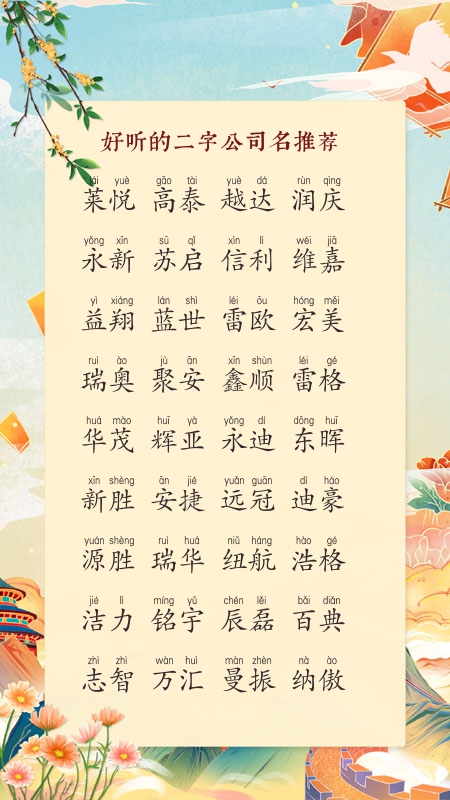 好听的二字公司名推荐
lái yuè gāo tài yuè dá rùn qìng
莱悦 高泰 越达 润庆
yǒng xīn sū qǐ xìn lì wéi jiā
永新 苏启 信利 维嘉
yì xiáng lán shì léi ōu hóng měi
益翔 蓝世 雷欧 宏美
ruì ào jù ān xīn shùn léi gé
瑞奥 聚安 鑫顺 雷格
huá mào huī yà yǒng dí dōng huī
华茂 辉亚 永迪 东晖
xīn shèng ān jié yuǎn guān dí háo
新胜 安捷 远冠 迪豪
yuán shèng ruì huá niǔ háng hào gé
源胜 瑞华 纽航 浩格
jié lì míng yǔ chén lěi bǎi diǎn
洁力 铭宇 辰磊 百典
zhì zhì wàn huì màn zhèn nà ào
志智 万汇 曼振 纳傲